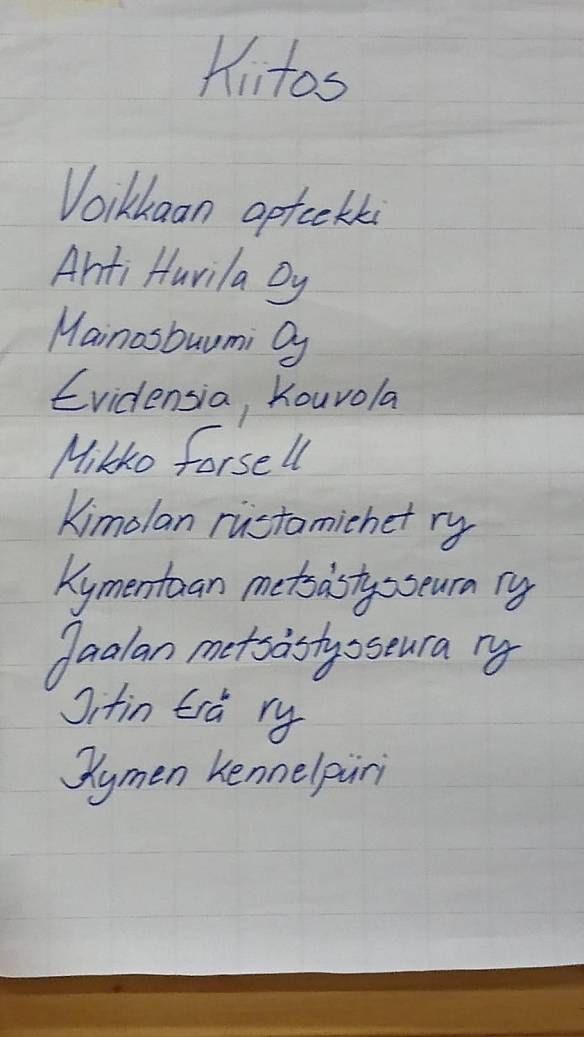 Kiitos
Voikkaan apteekki
Ahti Huvila Oy
Mainosbuumi Oy
Evidensia, Kouvola
Mikko Forsell
Kimolan riistamiehet ry
Kymentaan metsästysseura ry
Jaalan metsästysseura ry
Iitin Erä ry
Kymen kennelpiiri